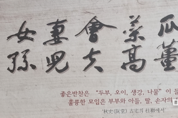 瓜薑
菜高
會夫
妻兒
女孫
좋은반찬은, "두부, 오이, 생강, 나물" 이
훌륭한 모임은 부부와 아들, 딸, 손자